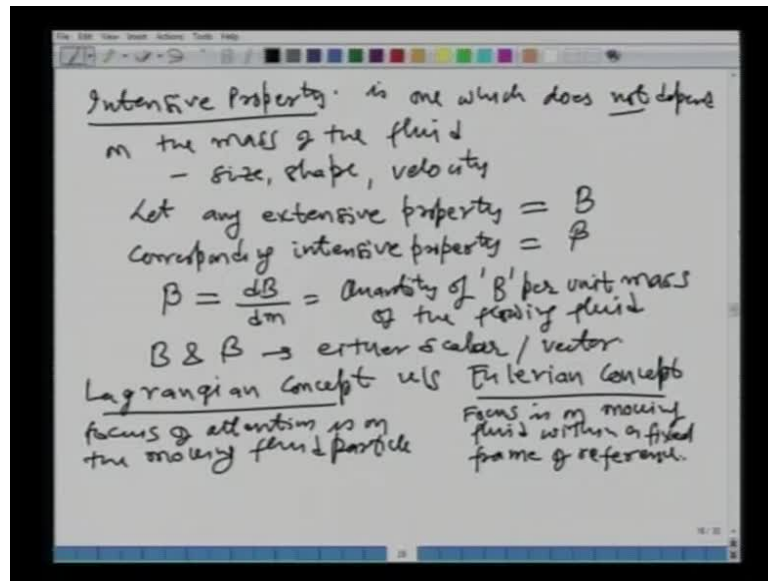 File Edit View Insert Actions Tools Help
Intensive Property. is one which does not depend
on the mass of the fluid
- size, shape, velocity
Let any extensive property = B
Corresponding intensive property = β
β = dB/dm = Quantity of 'B' per unit mass
of the flowing fluid
B & β → either scalar / vector.
Lagrangian Concept v/s Eulerian Concept
Focus of attention is on
the moving fluid particle
Focus is on moving
fluid within a fixed
frame of reference.